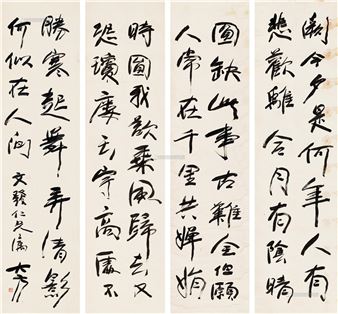 闕今夕是何年人有
悲歡離合月有陰晴
圓缺此事古難全但願
人常在千里共嬋娟
時圓我欲乘風歸去又
恐瓊廔玉宇高處不
勝寒起舞弄清影
何似在人間 仁兄屬